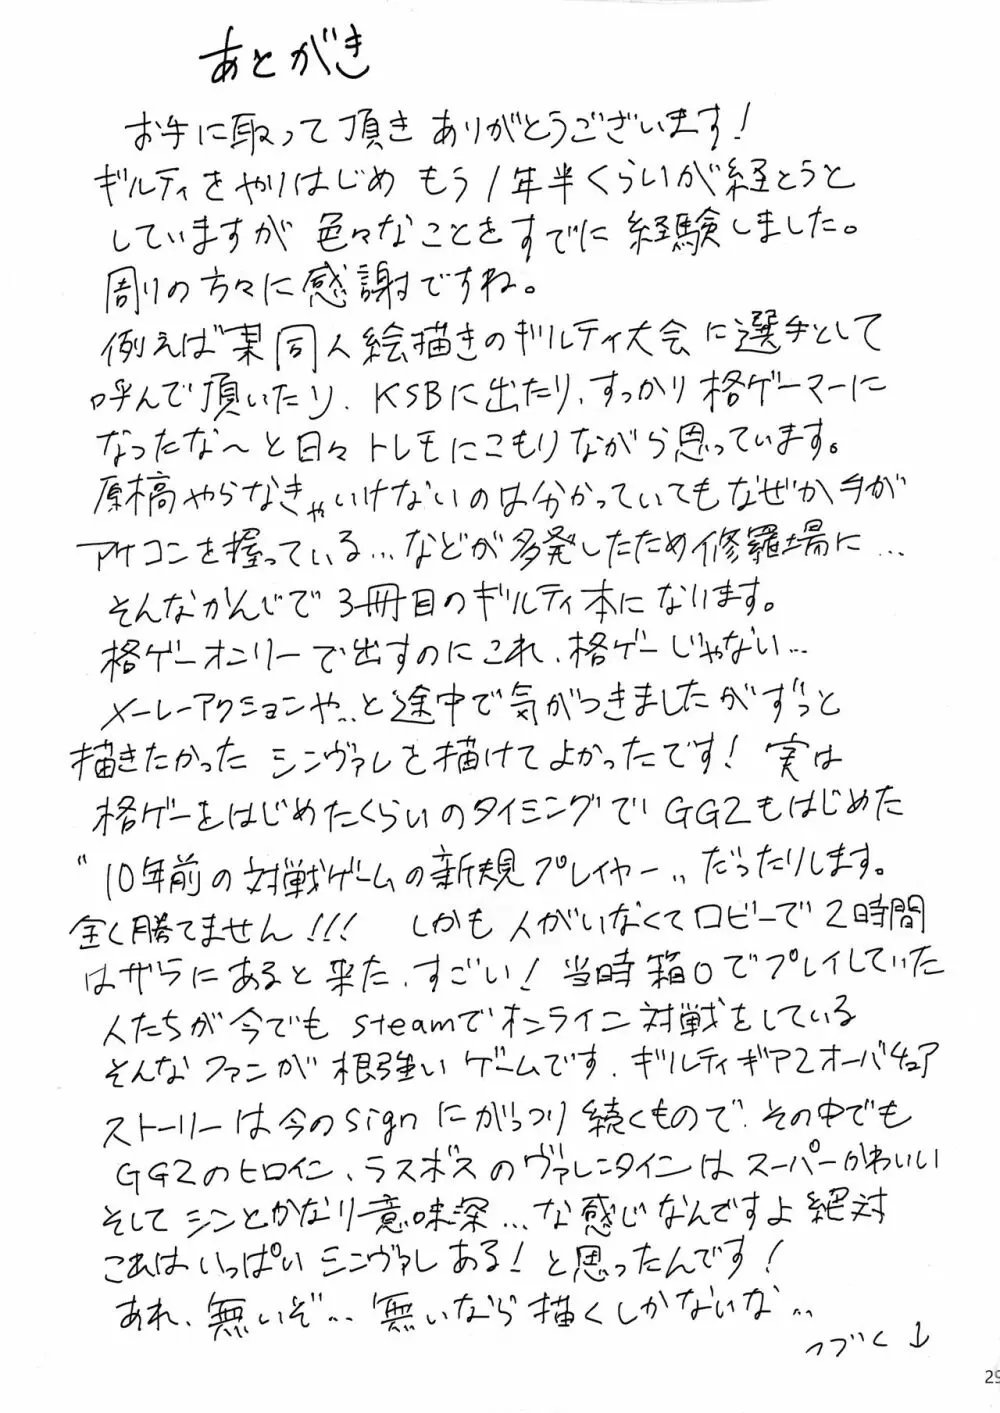 あとがき
お手に取って頂き ありがとうございます！
ギルティをやりはじめ もう1年半くらいが経とうと
していますが 色々なことをすでに経験しました。
周りの方々に感謝ですね。
例えば某同人絵描きのギルティ大会に選手として
呼んで頂いたり、KSBに出たり、すっかり格ゲーマーに
なったな〜と日々トレモにこもりながら思っています。
原稿やらなきゃいけないのは分かっていてもなぜか手が
アケコンを握っている…などが多発したため修羅場に…
そんなかんじで3冊目のギルティ本になります。
格ゲーオンリーで出すのにこれ、格ゲーじゃない…
メーレーアクションや…と途中で気がつきましたがずっと
描きたかった シンヴァレを描けてよかったです！ 実は
格ゲーをはじめたくらいのタイミングで GG2もはじめた
〝10年前の対戦ゲームの新規プレイヤー〟だったりします。
全く勝てません！！！ しかも人がいなくてロビーで2時間
はザラにあると来た、すごい！ 当時箱0でプレイしていた
人たちが今でもsteamでオンライン対戦をしている
そんなファンが根強いゲームです、ギルティギア2オーバチュア
ストーリーは今のsignにがっつり続くもので、その中でも
GG2のヒロイン、ラスボスのヴァレンタインはスーパーかわいい
そしてシンとかなり意味深…な感じなんですよ絶対
これはいっぱいシンヴァレある！と思ったんです！
あれ、無いぞ… 無いなら描くしかないな…
つづく↓
29